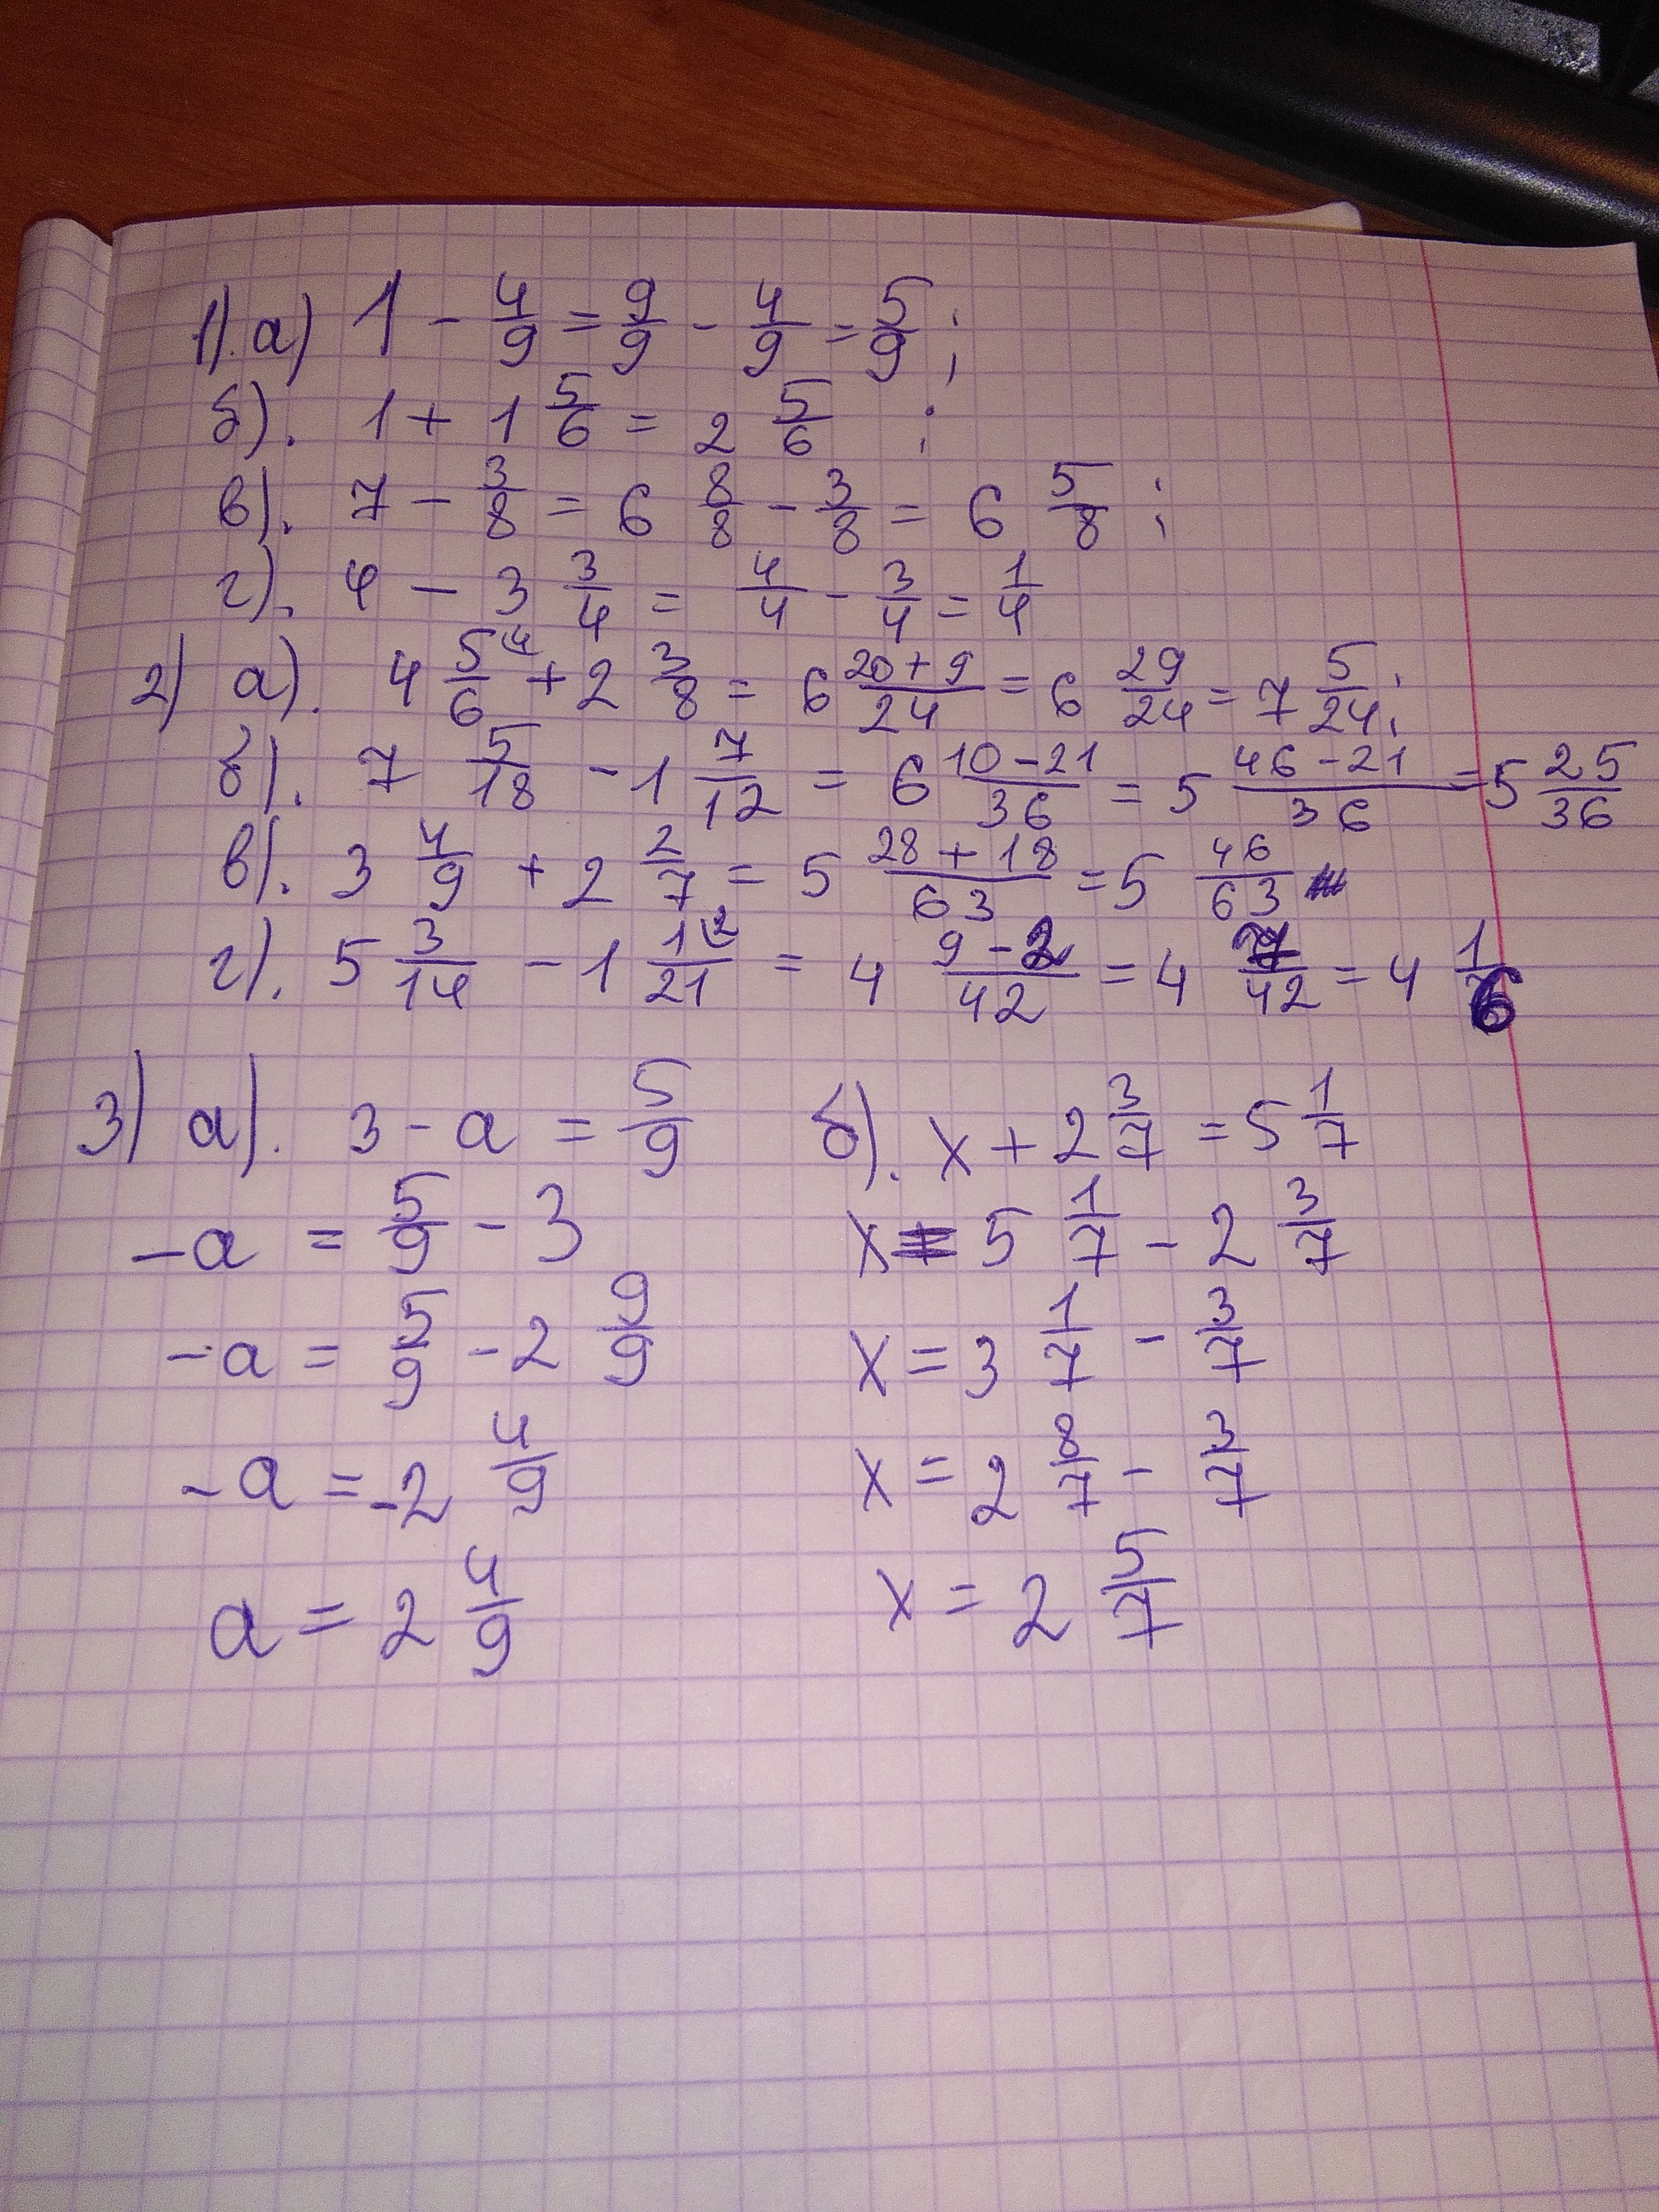 1). а) 1 - 4/9 = 9/9 - 4/9 = 5/9 ;
б). 1 + 1 5/6 = 2 5/6 ;
в). 7 - 3/8 = 6 8/8 - 3/8 = 6 5/8 ;
г). 4 - 3 3/4 = 4/4 - 3/4 = 1/4
2) а). 4 5/6 (4 + 2 3/8 = 6 (20+9)/24 = 6 29/24 = 7 5/24 ;
б). 7 5/18 - 1 7/12 = 6 (10-21)/36 = 5 (46-21)/36 = 5 25/36
в). 3 4/9 + 2 2/7 = 5 (28+18)/63 = 5 46/63
г). 5 3/14 - 1 1/21 (2 = 4 (9-2)/42 = 4 7/42 = 4 1/6
3) а). 3 - a = 5/9
-a = 5/9 - 3
-a = 5/9 - 2 9/9
-a = -2 4/9
a = 2 4/9
б). x + 2 3/7 = 5 1/7
x = 5 1/7 - 2 3/7
x = 3 1/7 - 3/7
x = 2 8/7 - 3/7
x = 2 5/7